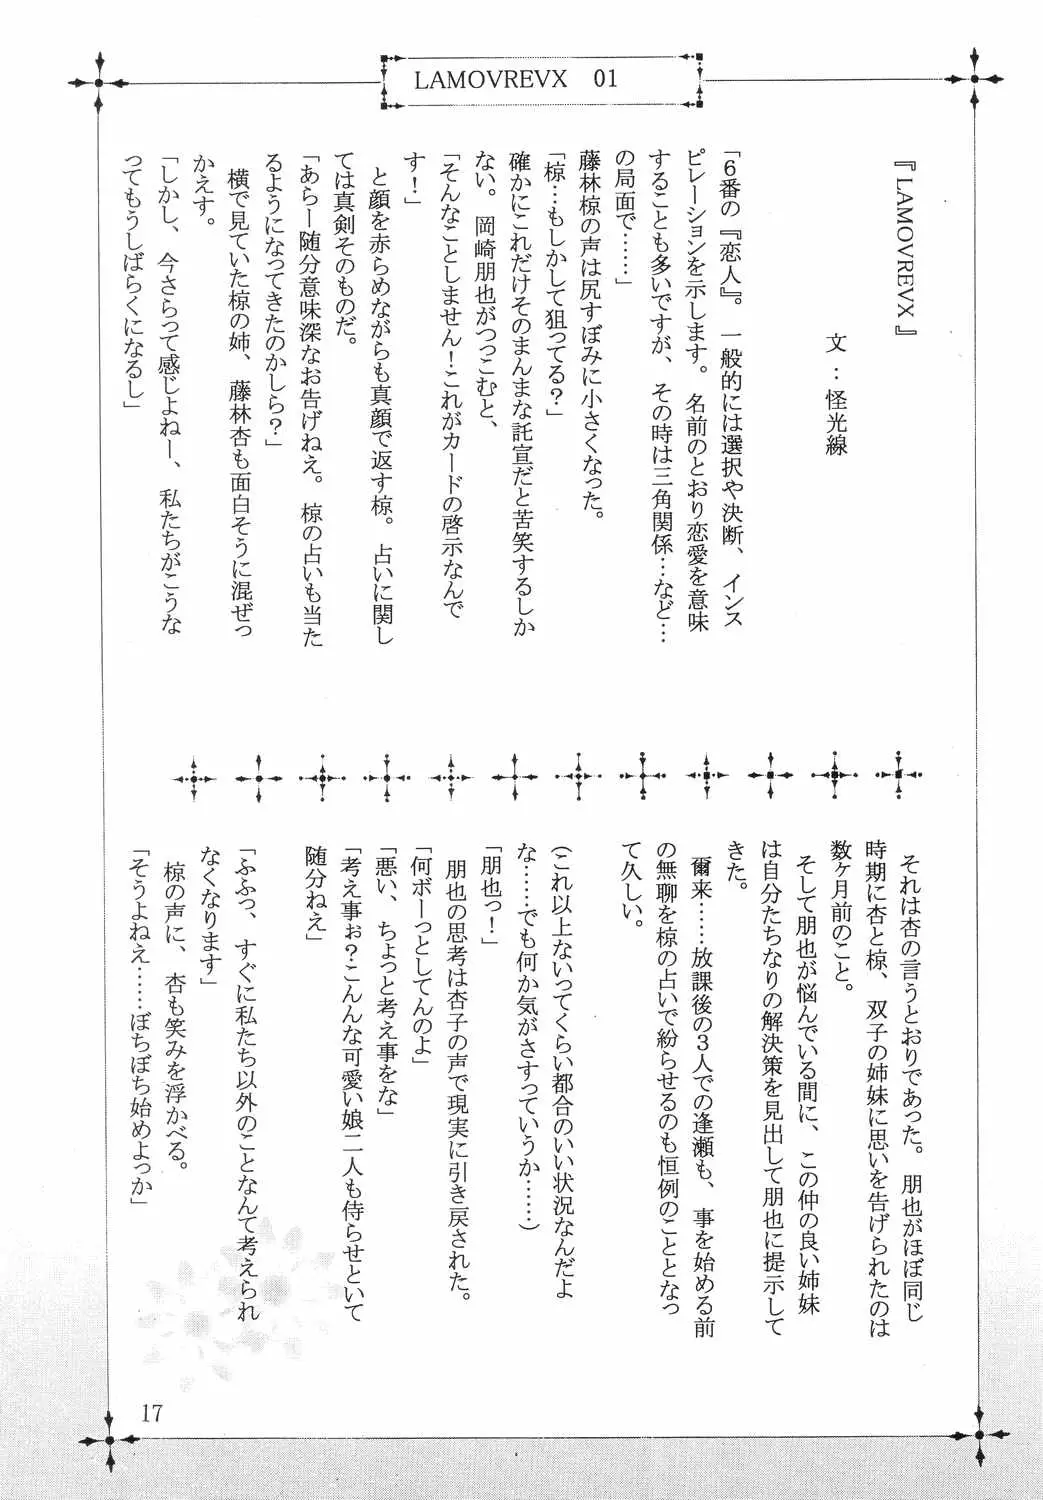 LAMOVREVX 01
『LAMOVREVX』
文：怪光線
「６番の『恋人』。一般的には選択や決断、インス
ピレーションを示します。名前のとおり恋愛を意味
することも多いですが、その時は三角関係…など…
の局面で……」
藤林椋の声は尻すぼみに小さくなった。
「椋…もしかして狙ってる？」
確かにこれだけそのまんまな託宣だと苦笑するしか
ない。岡崎朋也がつっこむと、
「そんなことしません！これがカードの啓示なんで
す！」
と顔を赤らめながらも真顔で返す椋。占いに関し
ては真剣そのものだ。
「あらー随分意味深なお告げねえ。椋の占いも当た
るようになってきたのかしら？」
横で見ていた椋の姉、藤林杏も面白そうに混ぜっ
かえす。
「しかし、今さらって感じよねー、私たちがこうな
ってもうしばらくになるし」
それは杏の言うとおりであった。朋也がほぼ同じ
時期に杏と椋、双子の姉妹に思いを告げられたのは
数ヶ月前のこと。
そして朋也が悩んでいる間に、この仲の良い姉妹
は自分たちなりの解決策を見出して朋也に提示して
きた。
爾来……放課後の３人での逢瀬も、事を始める前
の無聊を椋の占いで紛らせるのも恒例のこととなっ
て久しい。
(これ以上ないってくらい都合のいい状況なんだよ
な……でも何か気がさすっていうか……)
「朋也っ！」
朋也の思考は杏子の声で現実に引き戻された。
「何ボーっとしてんのよ」
「悪い、ちょっと考え事をな」
「考え事ぉ？こんんな可愛い娘二人も侍らせといて
随分ねえ」
「ふふっ、すぐに私たち以外のことなんて考えられ
なくなります」
椋の声に、杏も笑みを浮かべる。
「そうよねえ……ぼちぼち始めよっか」
17